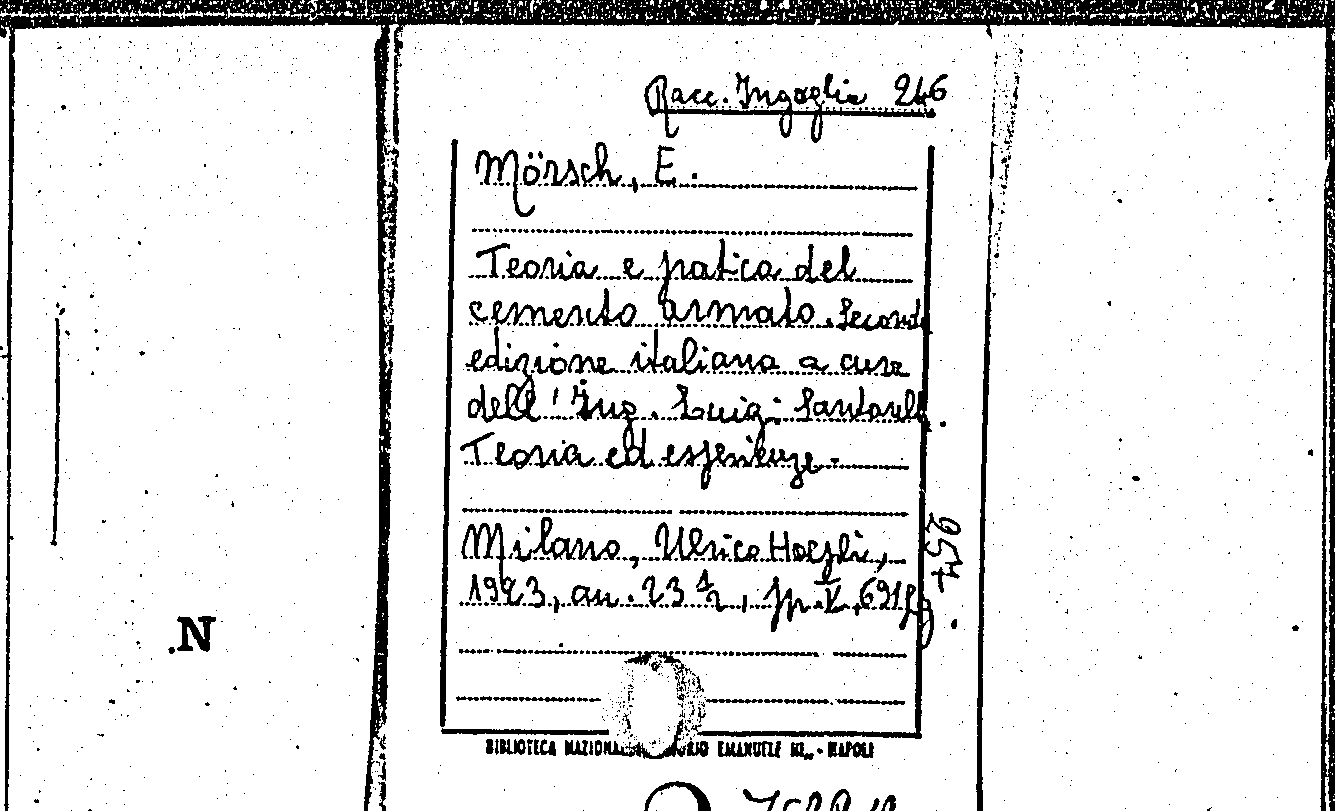 Racc. Ingaglia 246
Mörsch, E.
Teoria e pratica del
cemento armato. Seconda
edizione italiana a cura
dell'Ing. Luigi Santarella.
Teoria ed esperienze.
Milano, Ulrico Hoepli,
1923, au. 23 1/2, pp. X, 691
257
.N
BIBLIOTECA NAZIONALE VITTORIO EMANUELE III - NAPOLI